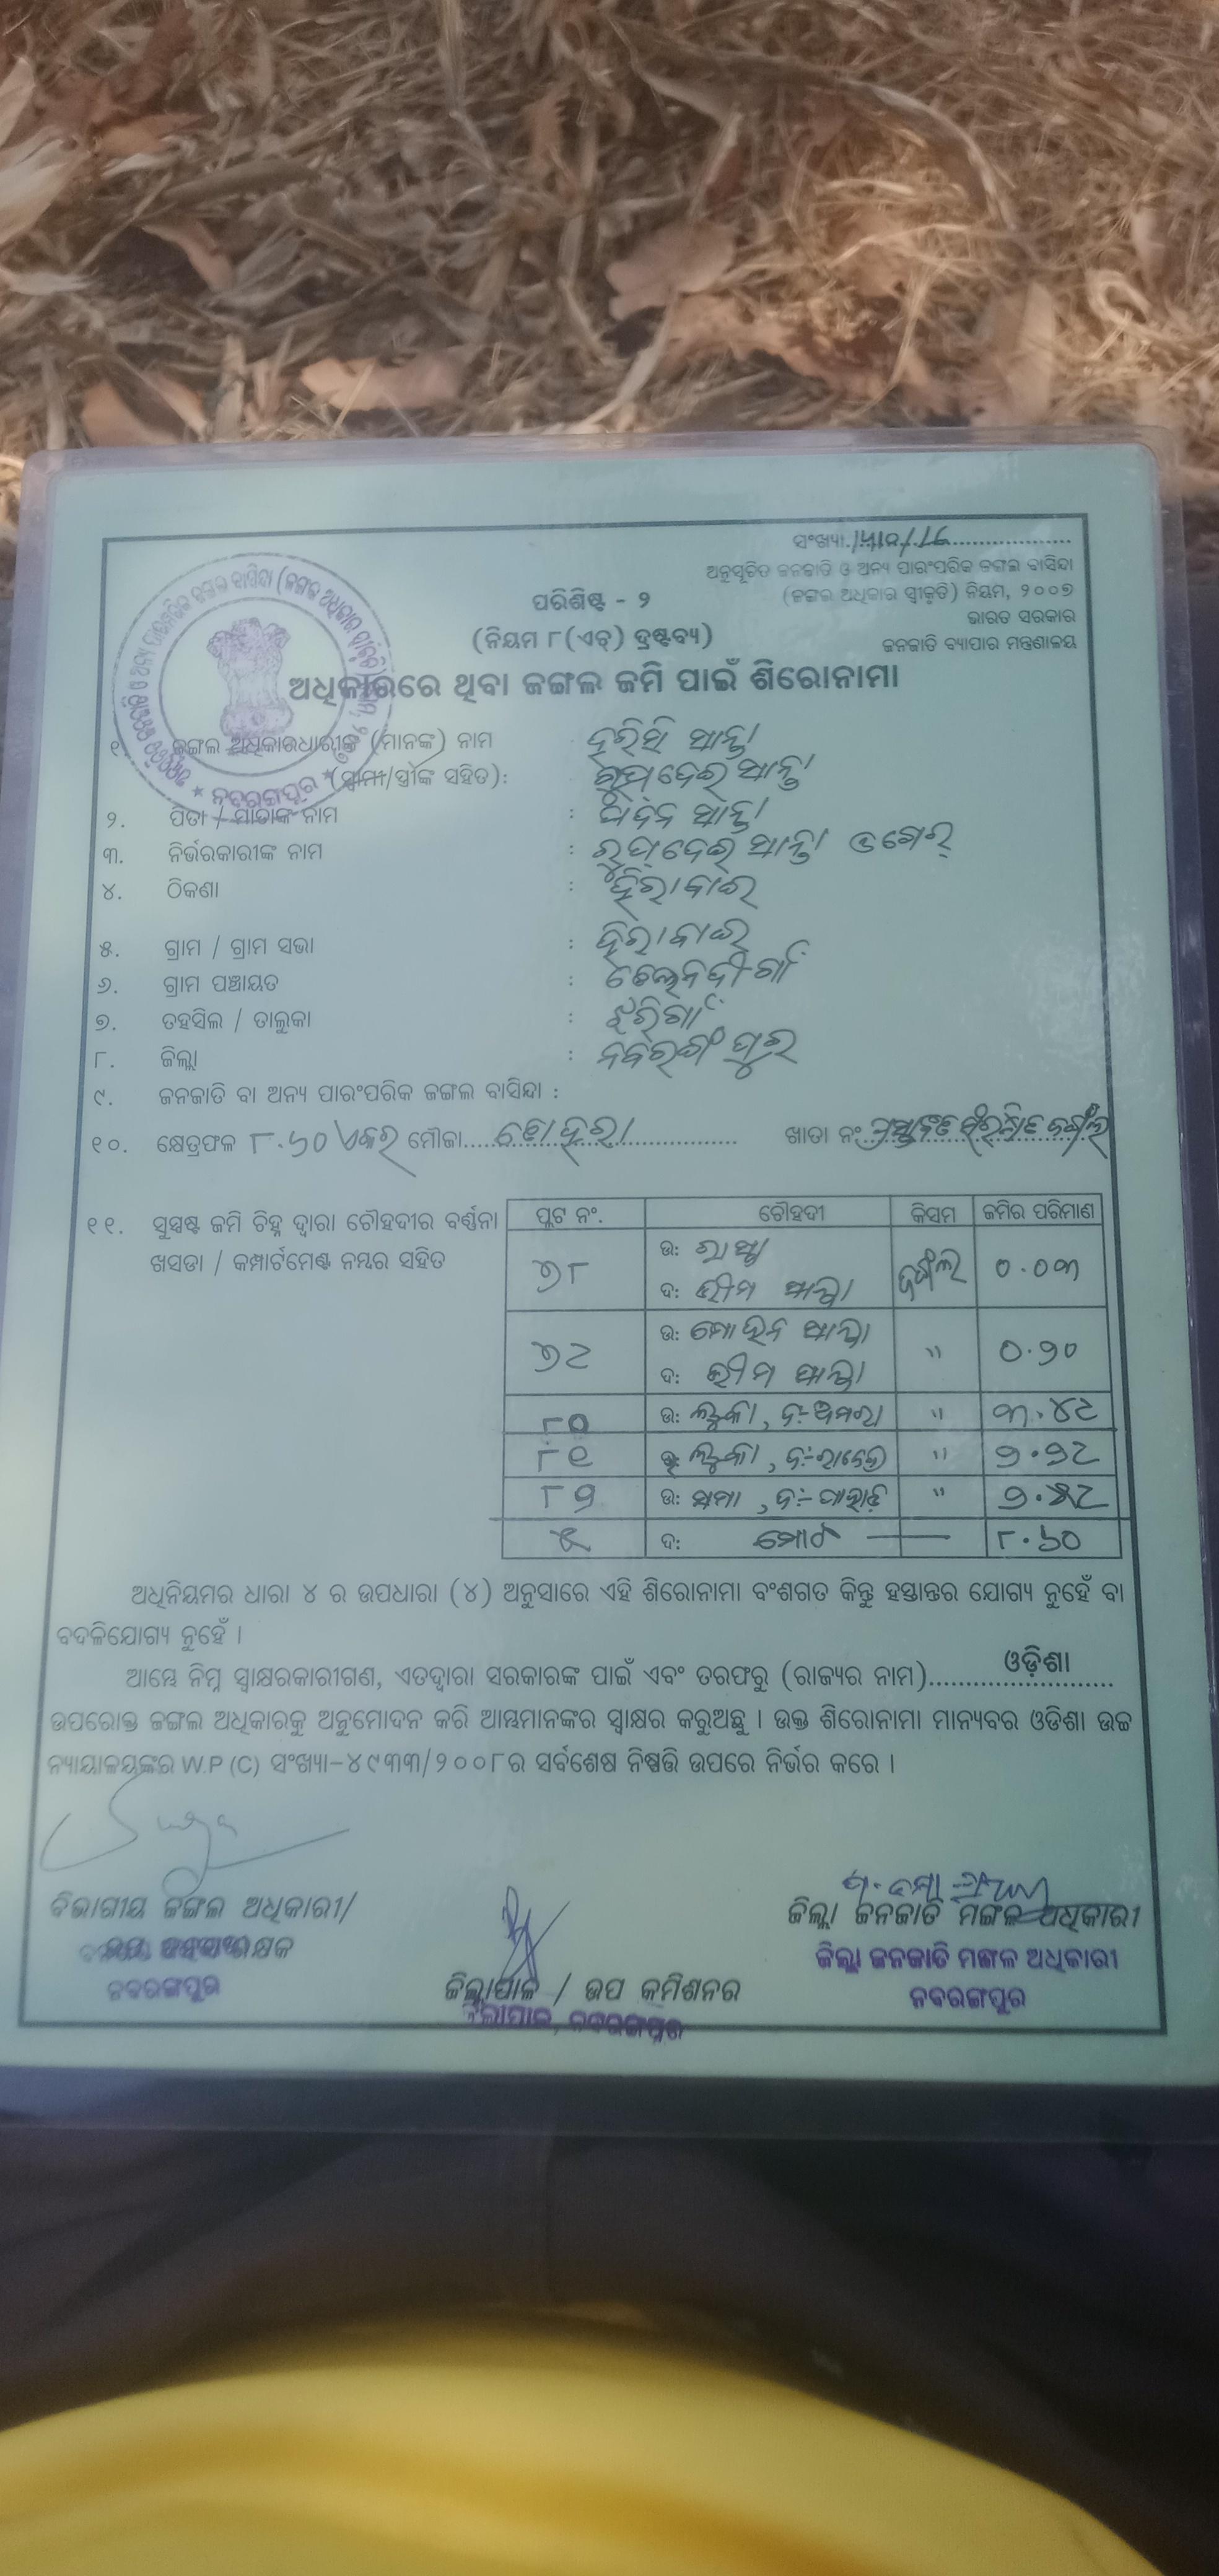 ସଂଖ୍ୟା
ଅନୁସୂଚିତ ଜନଜାତି ଓ ଅନ୍ୟ ପାରଂପରିକ ଜଙ୍ଗଲ ବାସିନ୍ଦା
(ଜଙ୍ଗଲ ଅଧିକାର ସ୍ୱୀକୃତି) ନିୟମ, ୨୦୦୭
ଭାରତ ସରକାର
ଜନଜାତି ବ୍ୟାପାର ମନ୍ତ୍ରଣାଳୟ
ପରିଶିଷ୍ଟ - ୨
(ନିୟମ ୮(ଏଚ୍) ଦ୍ରଷ୍ଟବ୍ୟ)
ଅଧିକାରରେ ଥିବା ଜଙ୍ଗଲ ଜମି ପାଇଁ ଶିରୋନାମା
୧. ଜଙ୍ଗଲ ଅଧିକାରଧାରୀଙ୍କ (ମାନଙ୍କ) ନାମ ହରିସି ସାନ୍ତା
(ସ୍ୱାମୀ/ସ୍ତ୍ରୀଙ୍କ ସହିତ): ସାନ୍ତା
୨. ପିତା / ମାତାଙ୍କ ନାମ : ସାନ୍ତା
୩. ନିର୍ଭରକାରୀଙ୍କ ନାମ : ସାନ୍ତା
୪. ଠିକଣା : ହିରାବାଇ
୫. ଗ୍ରାମ / ଗ୍ରାମ ସଭା : ହିରାବାଇ
୬. ଗ୍ରାମ ପଞ୍ଚାୟତ :
୭. ତହସିଲ / ତାଲୁକା : ଝରିଗାଁ
୮. ଜିଲ୍ଲା : ନବରଙ୍ଗପୁର
୯. ଜନଜାତି ବା ଅନ୍ୟ ପାରଂପରିକ ଜଙ୍ଗଲ ବାସିନ୍ଦା :
୧୦. କ୍ଷେତ୍ରଫଳ ୮.୬୦ ଏକର ମୌଜା ଖାତା ନଂ
୧୧. ସୁସ୍ପଷ୍ଟ ଜମି ଚିହ୍ନ ଦ୍ୱାରା ଚୌହଦୀର ବର୍ଣ୍ଣନା
ଖସଡା / କମ୍ପାର୍ଟମେଣ୍ଟ ନମ୍ବର ସହିତ
ପ୍ଲଟ ନଂ. ଚୌହଦୀ କିସମ ଜମିର ପରିମାଣ
୭୮ ଉ: ରାସ୍ତା ଜଙ୍ଗଲ ୦.୦୩
ଦ: ଭୀମ ସାନ୍ତା
୭୯ ଉ: ମୋହନ ସାନ୍ତା " ୦.୨୦
ଦ: ଭୀମ ସାନ୍ତା
୮୦ ଉ: " ୩.୪୯
୮୧ " ୨.୨୯
୮୨ ଉ: " ୨.୫୯
୫ ଦ: ମୋଟ ୮.୬୦
ଅଧିନିୟମର ଧାରା ୪ ର ଉପଧାରା (୪) ଅନୁସାରେ ଏହି ଶିରୋନାମା ବଂଶଗତ କିନ୍ତୁ ହସ୍ତାନ୍ତର ଯୋଗ୍ୟ ନୁହେଁ ବା
ବଦଳିଯୋଗ୍ୟ ନୁହେଁ ।
ଆମ୍ଭେ ନିମ୍ନ ସ୍ୱାକ୍ଷରକାରୀଗଣ, ଏତଦ୍ୱାରା ସରକାରଙ୍କ ପାଇଁ ଏବଂ ତରଫରୁ (ରାଜ୍ୟର ନାମ) ଓଡ଼ିଶା
ଉପରୋକ୍ତ ଜଙ୍ଗଲ ଅଧିକାରକୁ ଅନୁମୋଦନ କରି ଆମ୍ଭମାନଙ୍କର ସ୍ୱାକ୍ଷର କରୁଅଛୁ । ଉକ୍ତ ଶିରୋନାମା ମାନ୍ୟବର ଓଡିଶା ଉଚ୍ଚ
ନ୍ୟାୟାଳୟଙ୍କର W.P (C) ସଂଖ୍ୟା-୪୯୩୩/୨୦୦୮ର ସର୍ବଶେଷ ନିଷ୍ପତ୍ତି ଉପରେ ନିର୍ଭର କରେ ।
ବିଭାଗୀୟ ଜଙ୍ଗଲ ଅଧିକାରୀ/
ନବରଙ୍ଗପୁର
ଜିଲ୍ଲାପାଳ / ଉପ କମିଶନର
ଜିଲ୍ଲାପାଳ, ନବରଙ୍ଗପୁର
ଜିଲ୍ଲା ଜନଜାତି ମଙ୍ଗଳ ଅଧିକାରୀ
ଜିଲ୍ଲା ଜନଜାତି ମଙ୍ଗଳ ଅଧିକାରୀ
ନବରଙ୍ଗପୁର